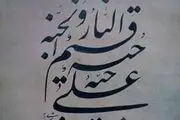 علی
حبه جنة
قسیم
النار و الجنة